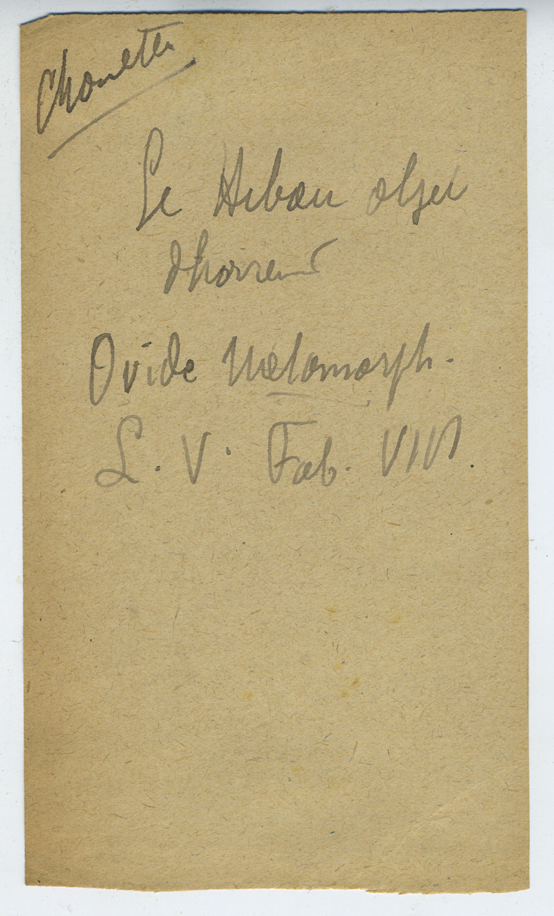 Chouette
Le Hibou objet
d'horreur
Ovide Métamorph.
L. V. Fab. VIII.